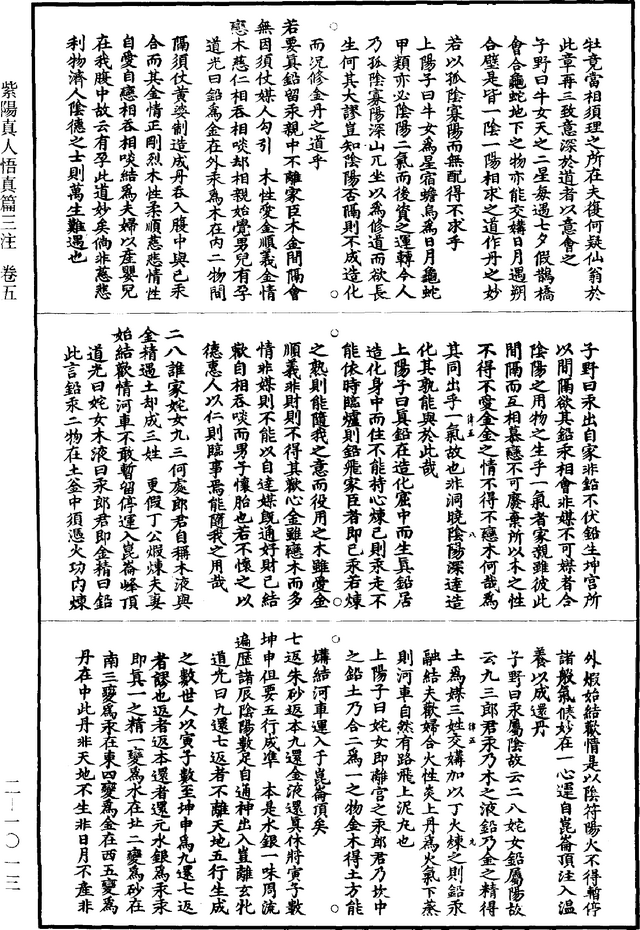 紫陽真人悟真篇三注　卷五
二—一〇一三
牡竟當相須理之所在夫復何疑仙翁於
此章再三致意深於道者以意會之
子野曰牛女天之二星每遇七夕假鵲橋
會合龜蛇地下之物亦能交媾日月遇朔
合璧是皆一陰一陽相求之道作丹之妙
若以孤陰寡陽而無配得不求乎
上陽子曰牛女為星宿蟾烏為日月龜蛇
甲類亦必陰陽二氣而後資之運轉令人
乃孤陰寡陽深山兀坐以為修道而欲長
生何其大謬豈知陰陽否隔則不成造化
而況修金丹之道乎
若要真鉛留汞親中不離家臣木金間隔會
無因須仗媒人勾引　木性愛金順義金情
戀木慈仁相吞相啖却相親始覺男兒有孕
道光曰鉛為金在外汞為木在內二物間
隔須仗黃婆制造成丹吞入腹中與己汞
合而其金情正剛烈木性柔順慈悲情性
自愛自戀相吞相啖結為夫婦以產嬰兒
在我腹中故云有孕此道妙矣倘非慈悲
利物濟人陰德之士則萬生難遇也
子野曰汞出自家非鉛不伏鉛生坤宮所
以間隔欲其鉛汞相會非媒不可媒者合
陰陽之用物之生乎一氣者家親雖彼此
間隔而互相慕戀不可廢棄所以木之性
不得不愛金金之情不得不戀木何哉為
其同出乎一氣故也非洞曉陰陽深達造
化其孰能與於此哉
上陽子曰真鉛在造化窟中而生真鉛居
造化身中而住不能持心煉己則汞走不
能依時臨爐則鉛飛家臣者即己汞若煉
之熟則能隨我之意而役用之木雖愛金
順義非財則不得其歡心金雖戀木而多
情非媒則不能以自達媒既通好財已結
歡自相吞啖而男子懷胎也若不懷之以
德惠人以仁則臨事焉能隨我之用哉
二八誰家姹女九三何處郎君自稱木液與
金精遇土却成三姓　更假丁公煅煉夫妻
始結歡情河車不敢暫留停運入崑崙峰頂
道光曰姹女木液曰汞郎君即金精曰鉛
此言鉛汞二物在土釜中須憑火功內煉
外煅始結歡情是以陰符陽火不得暫停
諸般氣候妙在一心還自崑崙頂注入溫
養以成還丹
子野曰汞屬陰故云二八姹女鉛屬陽故
云九三郎君汞乃木之液鉛乃金之精得
土為媒三姓交媾加以丁火煉之則鉛汞
融結夫歡婦合火性炎上丹為火氣下蒸
則河車自然有路飛上泥丸也
上陽子曰姹女即離宮之汞郎君乃坎中
之鉛土乃合二為一之物金木得土方能
媾結河車運入于崑崙頂矣
七返朱砂返本九還金液還真休將寅子數
坤申但要五行成準　本是水銀一味周流
遍歷諸辰陰陽數足自通神出入豈離玄牝
道光曰九還七返者不離天地五行生成
之數世人以寅子數至坤申為九還七返
者謬也返者返本還者還元水銀為汞汞
即真一之精一變為水在北二變為砂在
南三變為汞在東四變為金在西五變為
丹在中此丹非天地不生非日月不產非